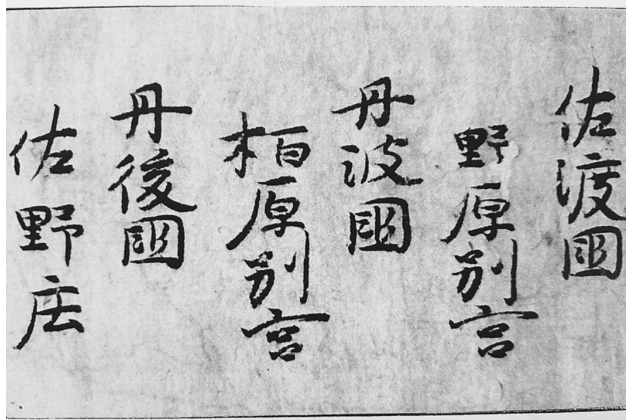 佐渡國
野原別宮
丹波國
栢原別宮
丹後國
佐野庄